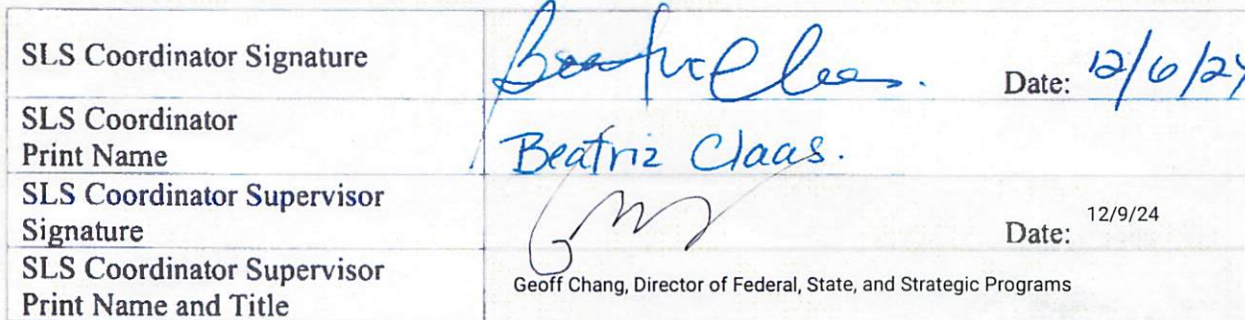 SLS Coordinator Signature
Beatriz Claas. Date: 12/6/24
SLS Coordinator
Print Name
Beatriz Claas.
SLS Coordinator Supervisor
Signature
Date: 12/9/24
SLS Coordinator Supervisor
Print Name and Title
Geoff Chang, Director of Federal, State, and Strategic Programs